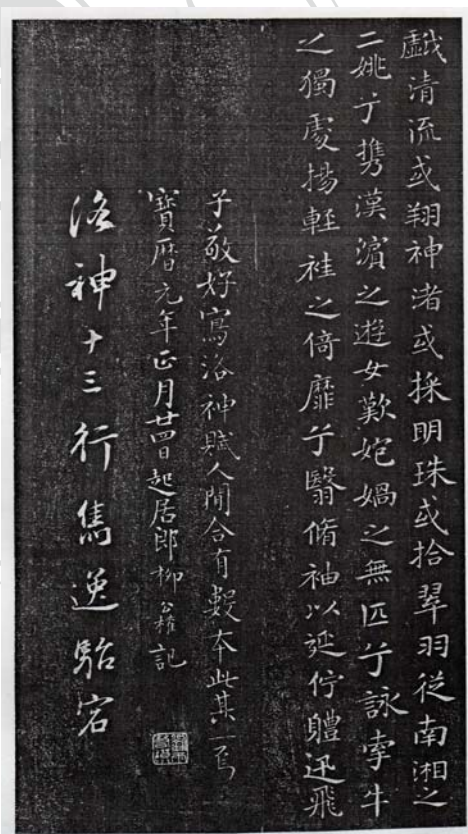 戲清流或翔神渚或採明珠或拾翠羽從南湘之
二姚兮携漢濱之遊女歎媧之無匹兮詠牽牛
之獨處揚輕袿之倚靡兮翳脩袖以延佇軆迅飛
子敬好寫洛神賦人間合有數本此其一焉
寶曆元年正月廿四日起居郎柳公權記
洛神十三行雋逸駘宕